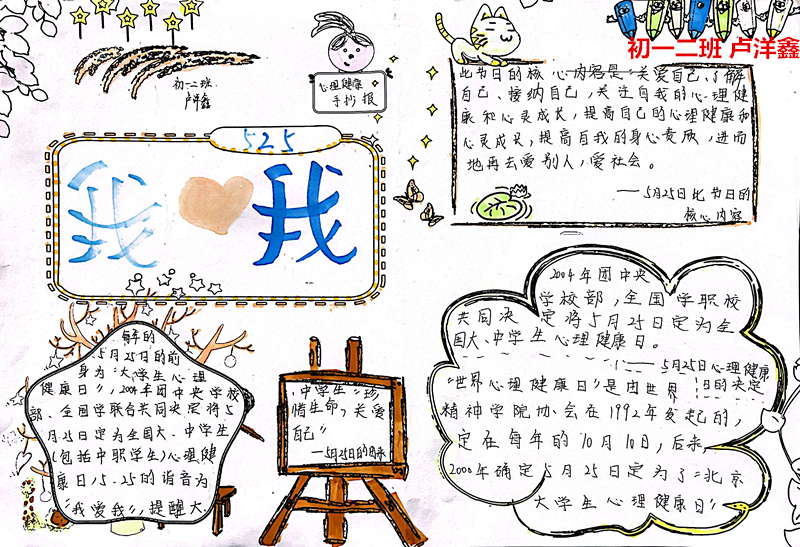 初一二班 卢洋鑫
初一二班
卢洋鑫
心理健康
手抄报
525
我 我
此节日的核心内容是:关爱自己、了解
自己、接纳自己,关注自我的心理健
康和心灵成长,提高自己的心理健康和
心灵成长,提高自我的身心素质,进而
地再去爱别人,爱社会。
——5月25日此节日的
核心内容
2004年团中央
学校部,全国学职校
共同决定将5月25日定为全
国大、中学生心理健康日。
——5月25日心理健康
日的决定
“世界心理健康日”是由世界
精神学院协会在1992年发起的,
定在每年的10月10日,后来,
2000年确定5月25日定为了“北京
大学生心理健康日”
解的
5月25日的前
身为“大学生心理
健康日”,2004年团中央学校
部、全国学联合共同决定将5
月25日定为全国大、中学生
(包括中职学生)心理健
康日,5.25的谐音为
“我爱我”,提醒大
中学生“珍
惜生命,关爱
自己”
——5月25日的由来